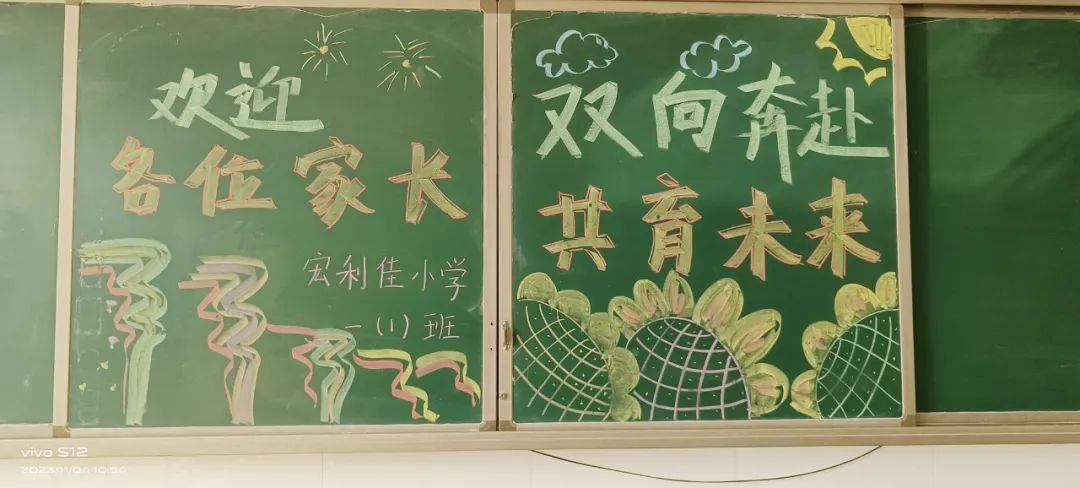 欢迎
各位家长
宏利佳小学
一(1)班
双向奔赴
共育未来
vivo S12
2023/11/04 10:54